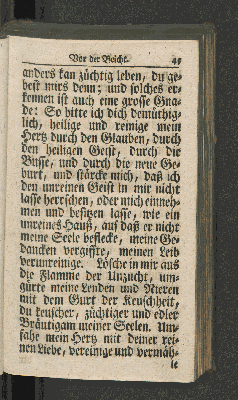 Vor der Beicht. 45
anders kan züchtig leben, du ge-
best mirs denn; und solches er-
kennen ist auch eine grosse Gna-
de: So bitte ich dich demüthig-
lich, heilige und reinige mein
Hertz durch den Glauben, durch
den heiligen Geist, durch die
Busse, und durch die neue Ge-
burt, und stärcke mich, daß ich
den unreinen Geist in mir nicht
lasse herrschen, oder mich einneh-
men und besitzen lasse, wie ein
unreines Hauß, auf daß er nicht
meine Seele beflecke, meine Ge-
dancken vergiffte, meinen Leib
verunreinige. Lösche in mir aus
die Flamme der Unzucht, um-
gürte meine Lenden und Nieren
mit dem Gurt der Keuschheit,
du keuscher, züchtiger und edler
Bräutigam meiner Seelen. Um-
fahe mein Hertz mit deiner rei-
nen Liebe, vereinige und vermäh-
le